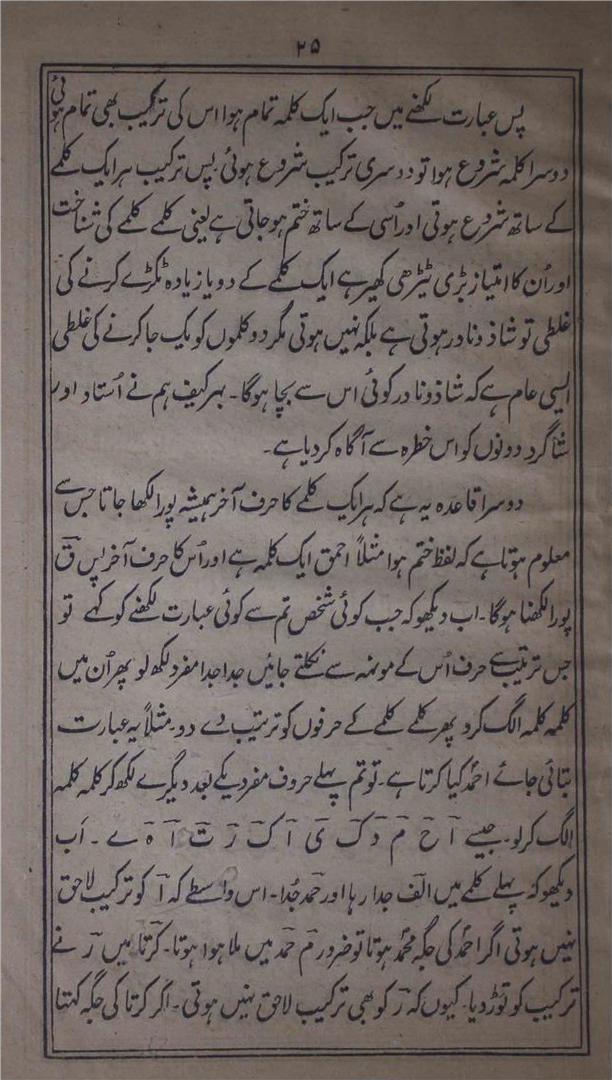 ۲۵
پس عبارت لکھنے میں جب ایک کلمہ تمام ہوا اس کی ترکیب بھی تمام ہوئی
دوسرا کلمہ شروع ہوا تو دوسری ترکیب شروع ہوئی پس ترکیب ہر ایک کلمے
کے ساتھ شروع ہوتی اور اُسی کے ساتھ ختم ہو جاتی ہے یعنی کلمے کلمے کی شناخت
اور اُن کا امتیاز بڑی ٹیڑھی کھیر ہے ایک کلمے کے دو یا زیادہ ٹکڑے کرنے کی
غلطی تو شاذ و نادر ہوتی ہے بلکہ نہیں ہوتی مگر دو کلموں کو یک جا کرنے کی غلطی
ایسی عام ہے کہ شاذ و نادر کوئی اس سے بچا ہوگا۔ بہر کیف ہم نے اُستاد اور
شاگرد دونوں کو اس خطرہ سے آگاہ کر دیا ہے۔
دوسرا قاعدہ یہ ہے کہ ہر ایک کلمے کا حرف آخر ہمیشہ پورا لکھا جاتا جس سے
معلوم ہوتا ہے کہ لفظ ختم ہوا مثلاً احمق ایک کلمہ ہے اور اُس کا حرف آخر پس ق
پورا لکھنا ہوگا۔ اب دیکھو کہ جب کوئی شخص تم سے کوئی عبارت لکھنے کو کہے تو
جس ترتیب سے حرف اُس کے مونہہ سے نکلتے جائیں جدا جدا مفرد لکھ لو پھر اُن میں
کلمہ کلمہ الگ کرو پھر کلمے کلمے کے حرفوں کو ترتیب دے دو۔ مثلاً یہ عبارت
بتائی جائے احمد کیا کرتا ہے۔ تو تم پہلے حروف مفرد یکے بعد دیگرے لکھ کر کلمہ کلمہ
الگ کر لو۔ جیسے ا ح م د ک ی ا ک ر ت ا ہ ے ۔ اَب
دیکھو کہ پہلے کلمے میں الف جدا رہا اور حمد جُدا۔ اس واسطے کہ ا کو ترکیب لاحق
نہیں ہوتی اگر احمد کی جگہ محمد ہوتا تو ضرور م حمد میں ملا ہوا ہوتا۔ کرتا میں ر نے
ترکیب کو توڑ دیا۔ کیوں کہ ر کو بھی ترکیب لاحق نہیں ہوتی۔ اگر کرتا کی جگہ کہتا